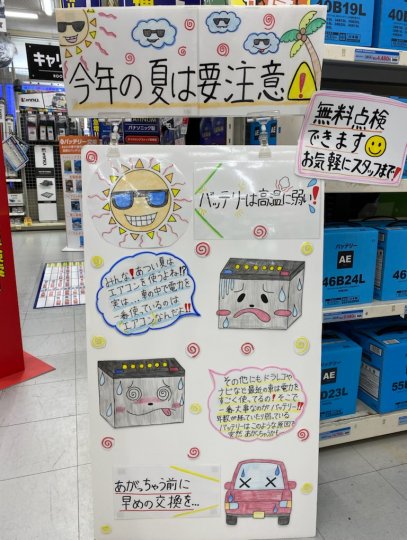 今年の夏は要注意!
無料点検
できます
お気軽にスタッフまで!
バッテリーは高温に弱い!!
みんな!あつい夏は
エアコンを使うよね!?
実は…車の中で電力を
一番使っているのは
エアコンなんだよ!!
その他にもドラレコや
ナビなど最近の車は電力を
すごく使ってるの!そこで
一番大事なのがバッテリー!!
バッテリーはこのような原因で
突然あがっちゃう!
あがっちゃう前に
早めの交換を…
キャリ
パナソニック製
バッテリー
40B19L
バッテリー
AE
46B24L
AE
55